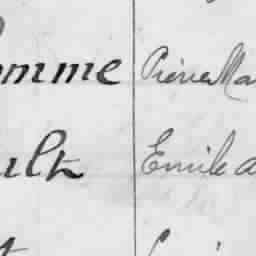 omme Pierre Ma
ult Emile a